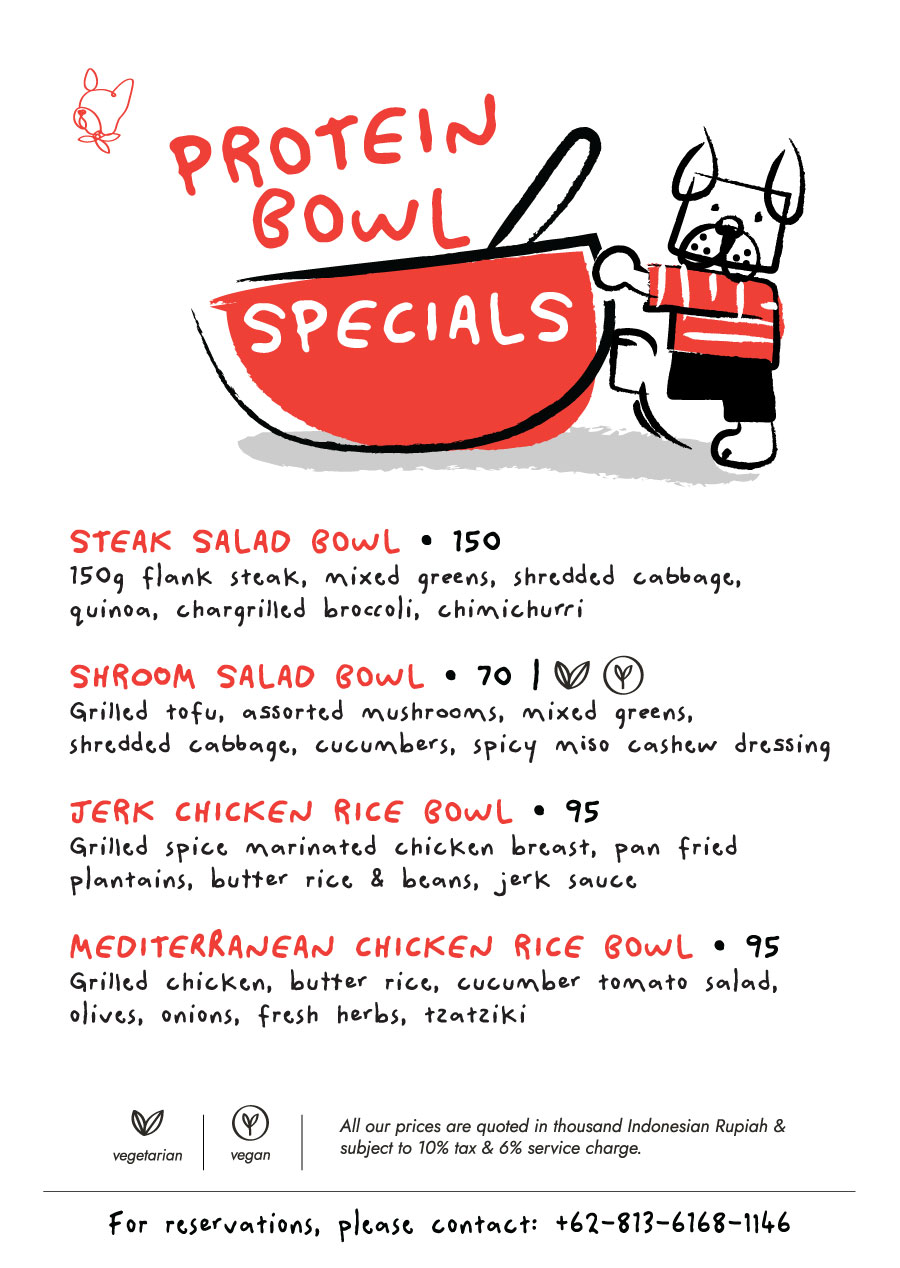 PROTEIN
BOWL
SPECIALS
STEAK SALAD BOWL • 150
150g flank steak, mixed greens, shredded cabbage,
quinoa, chargrilled broccoli, chimichurri
SHROOM SALAD BOWL • 70 |
Grilled tofu, assorted mushrooms, mixed greens,
shredded cabbage, cucumbers, spicy miso cashew dressing
JERK CHICKEN RICE BOWL • 95
Grilled spice marinated chicken breast, pan fried
plantains, butter rice & beans, jerk sauce
MEDITERRANEAN CHICKEN RICE BOWL • 95
Grilled chicken, butter rice, cucumber tomato salad,
olives, onions, fresh herbs, tzatziki
vegetarian
vegan
All our prices are quoted in thousand Indonesian Rupiah &
subject to 10% tax & 6% service charge.
For reservations, please contact: +62-813-6168-1146